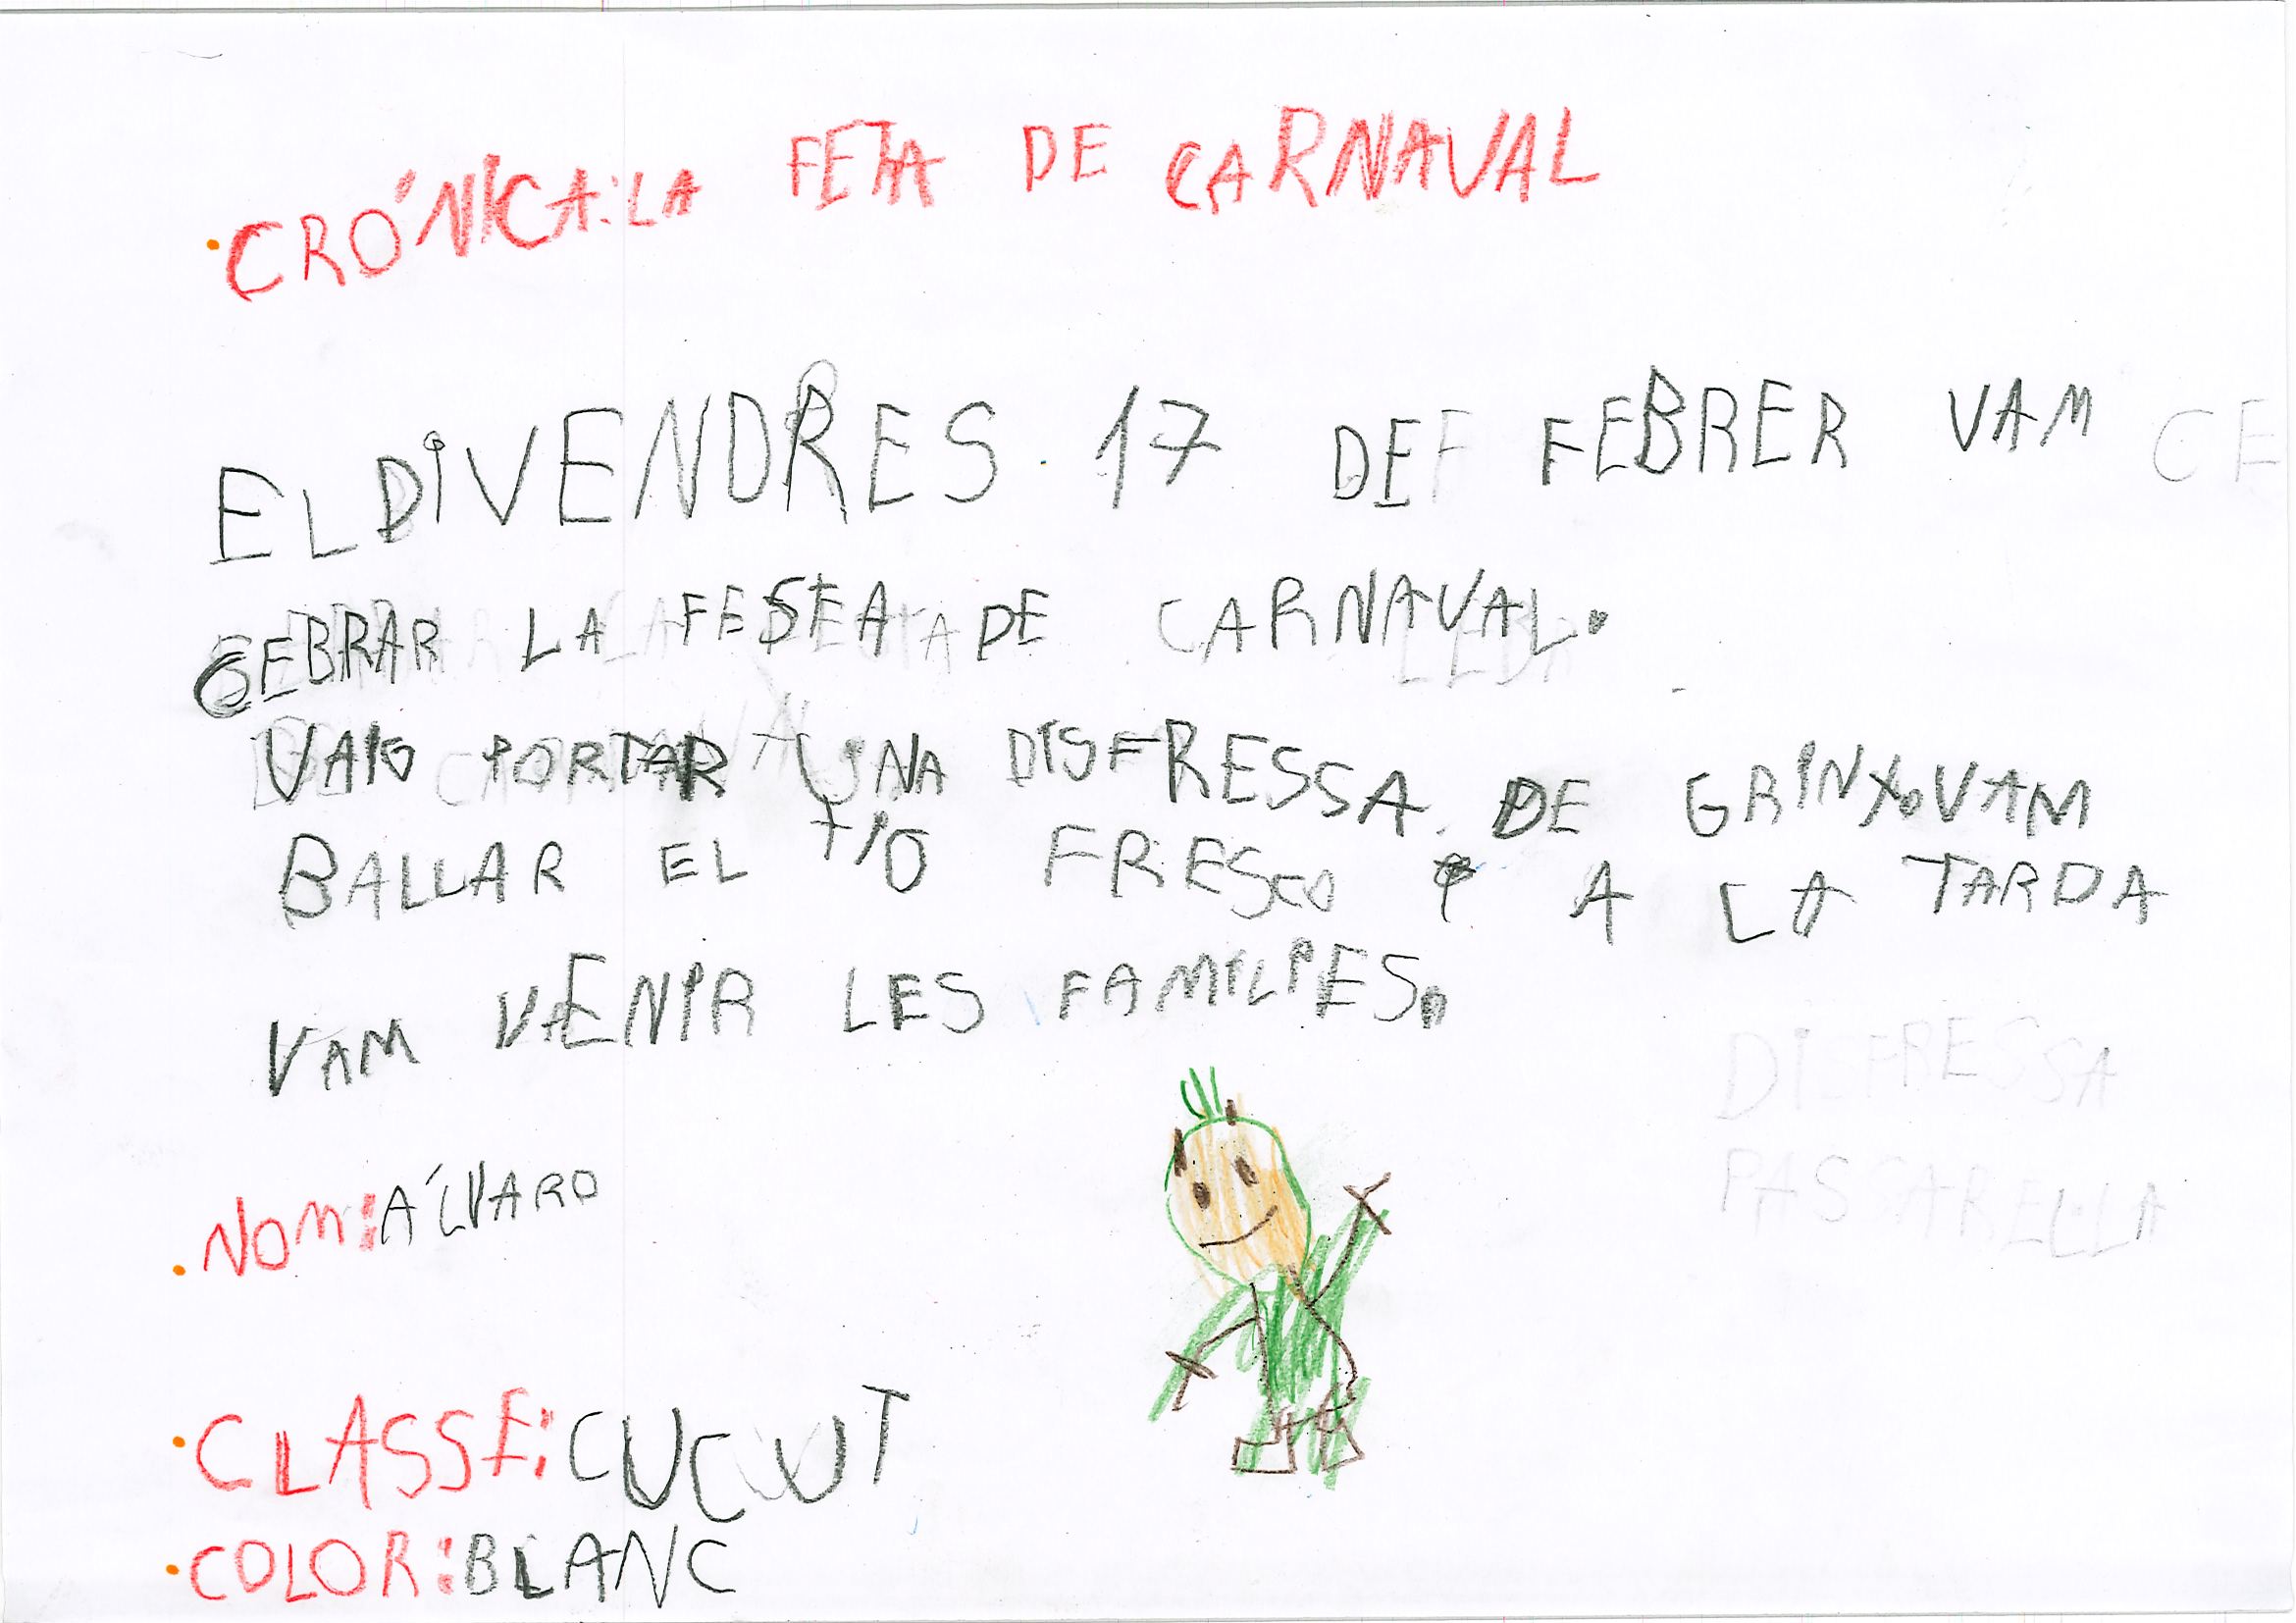 ·CRÓNICA:LA FETA DE CARNAVAL
EL DIVENDRES 17 DE FEBRER VAM CE
CEBRAR LA FESTA DE CARNAVAL.
VAIG PORTAR UNA DISFRESSA DE GRINX.VAM
BALLAR EL TIO FRESCO A LA TARDA
VAM VENIR LES FAMILIES.
DISFRESSA
PASSARELLA
·NOM:ÁLVARO
·CLASSE:CUCUT
·COLOR:BLANC